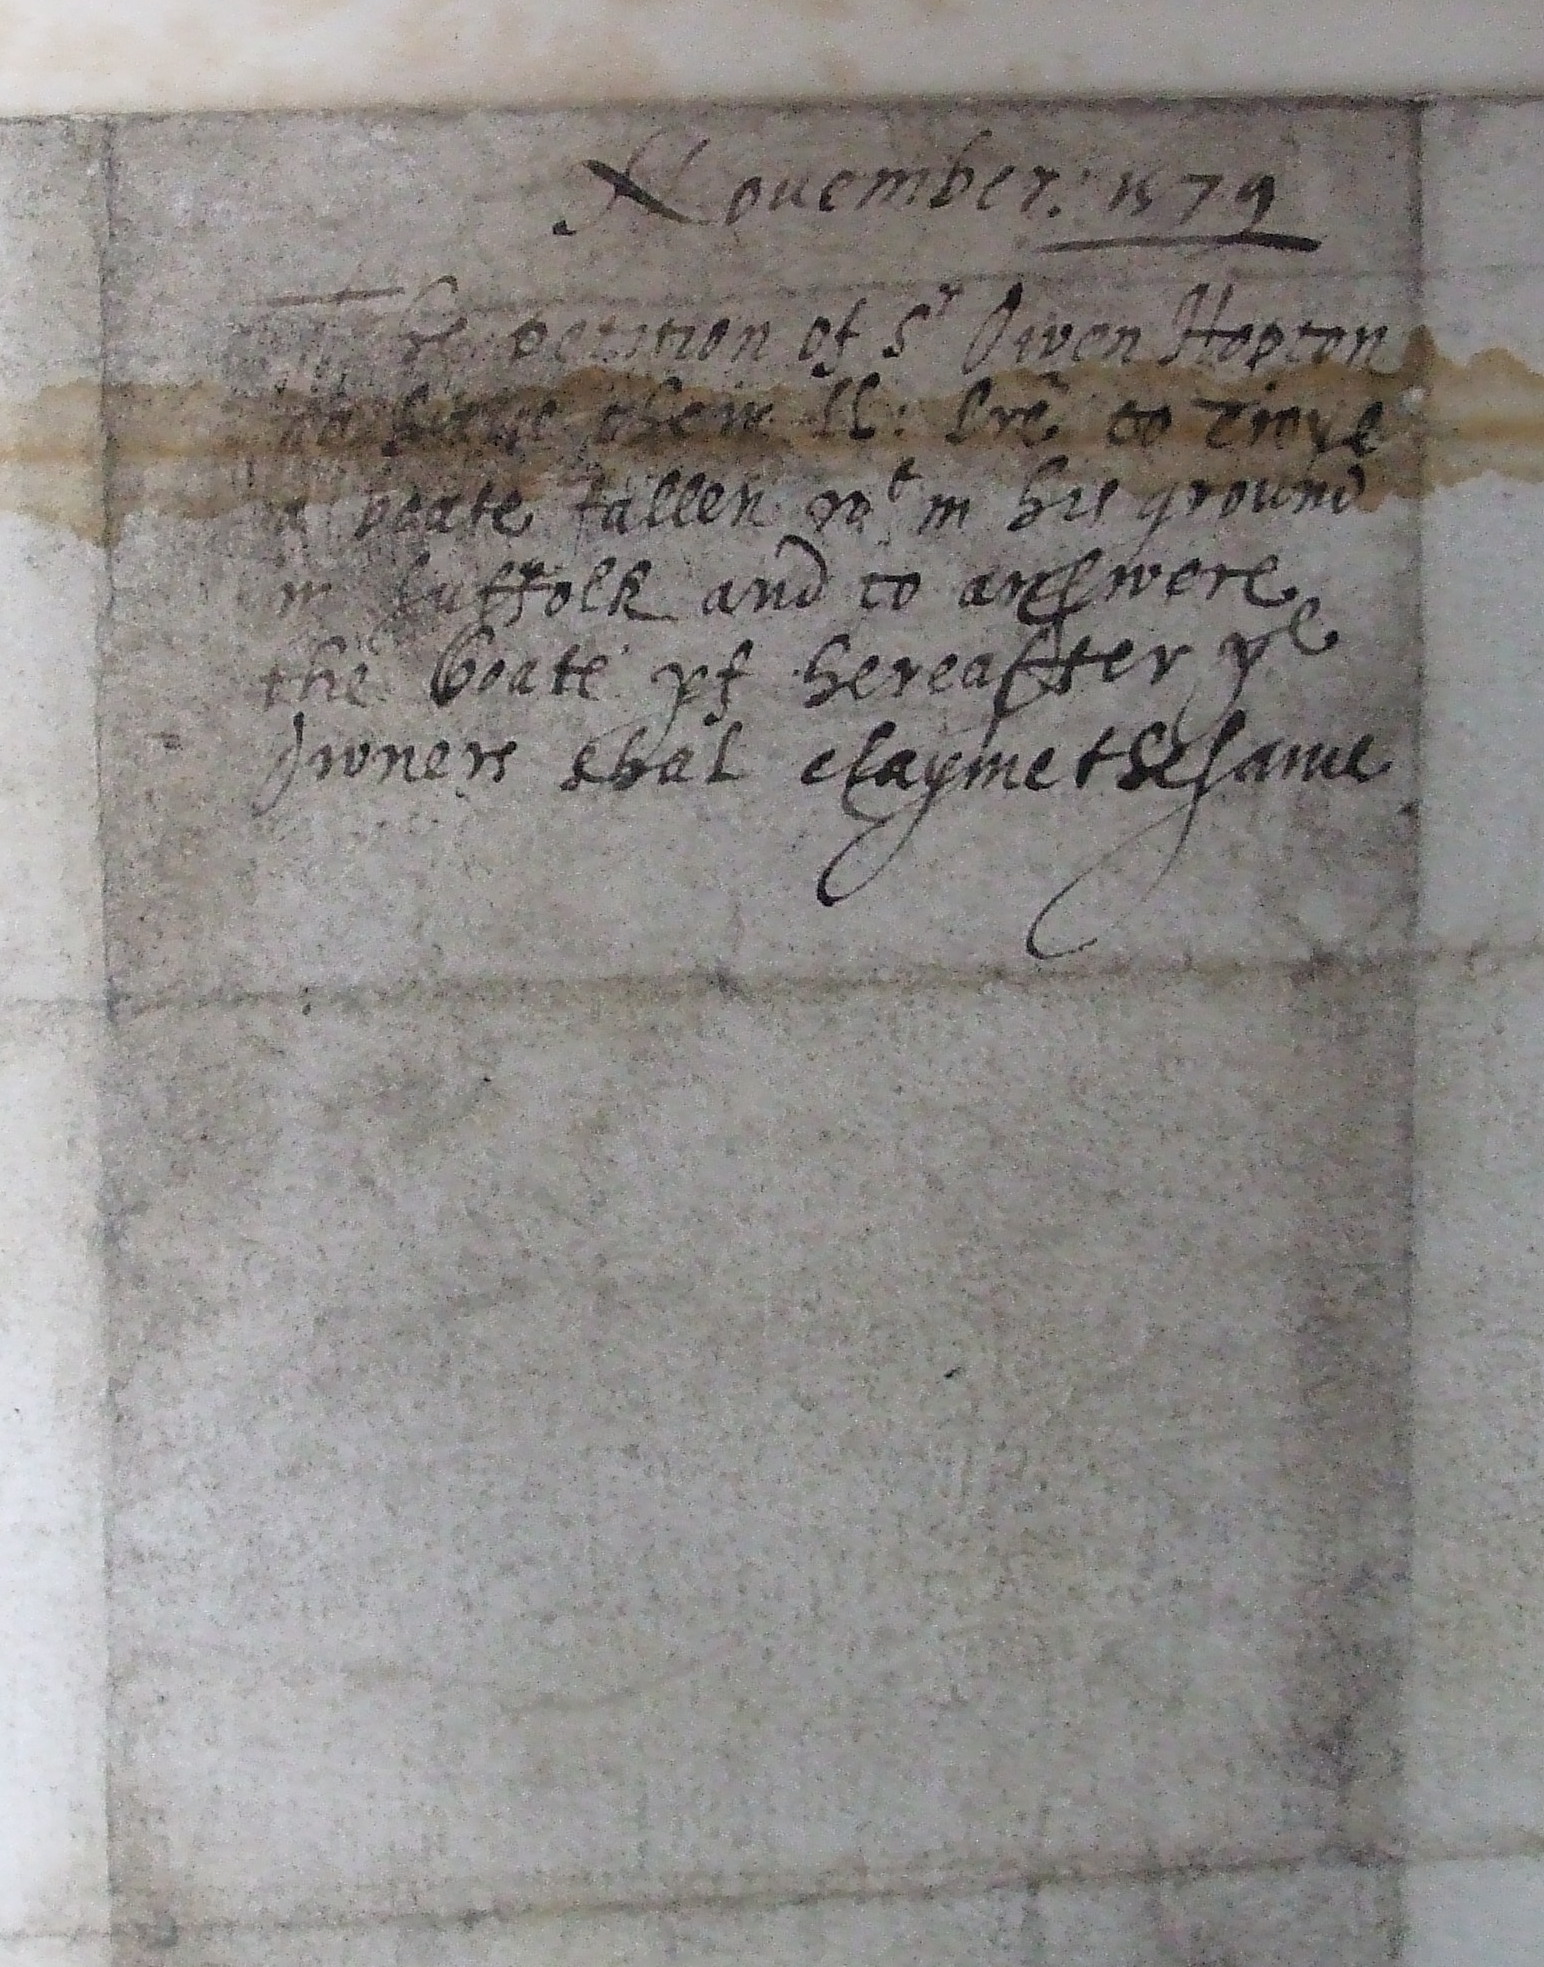 Nouember: 1579
The petition of Sr Owen Hopton
to haue their ll: lre to
a boate fallen wt in his ground
in Suffolk and to answere
the boate yf hereafter ye
owners shal clayme the same